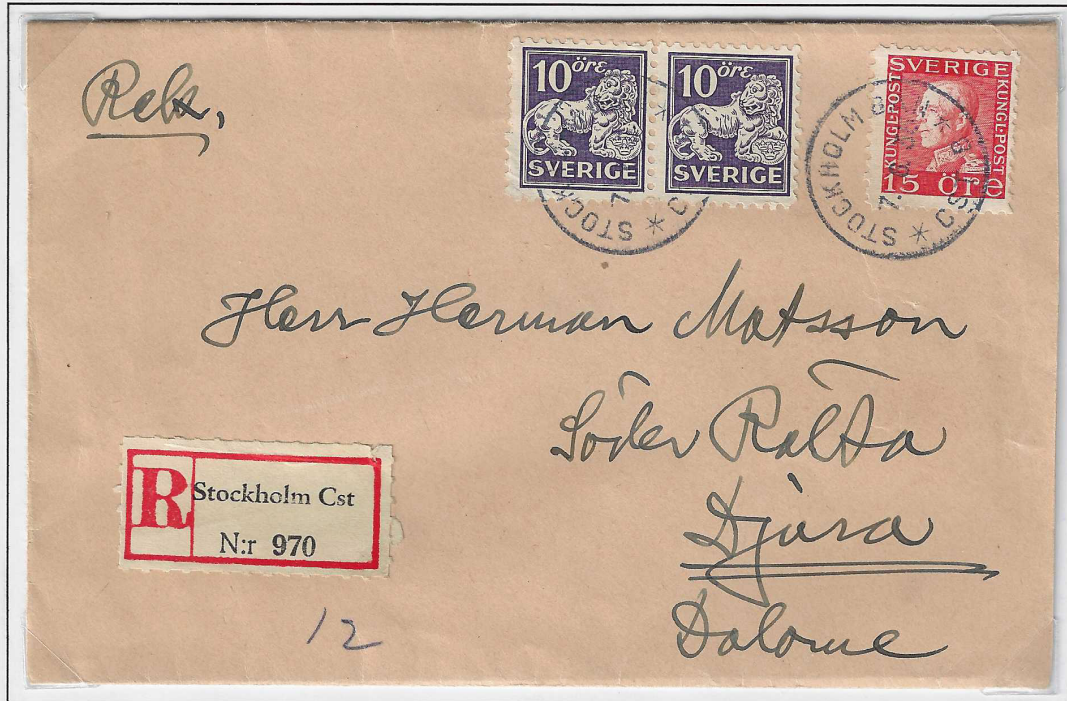 Rek,
10 öre
SVERIGE
10 öre
SVERIGE
SVERIGE
KUNGL·POST
KUNGL·POST
15 öre
STOCKHOLM
CST
Herr Herman Matsson
Söder Rälta
Djura
Dalarne
R
Stockholm Cst
N:r 970
12